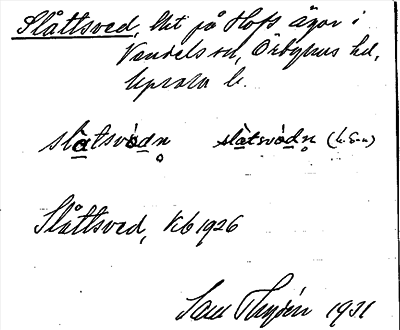 Slåttsved, lht på Hofs ägor i
Vendels sn, Örbyhus hd,
Uppsala l.
slàtsvὸdn slàtsvὸdn (l.S-n)
Slåttsved, Kb 1926
1931